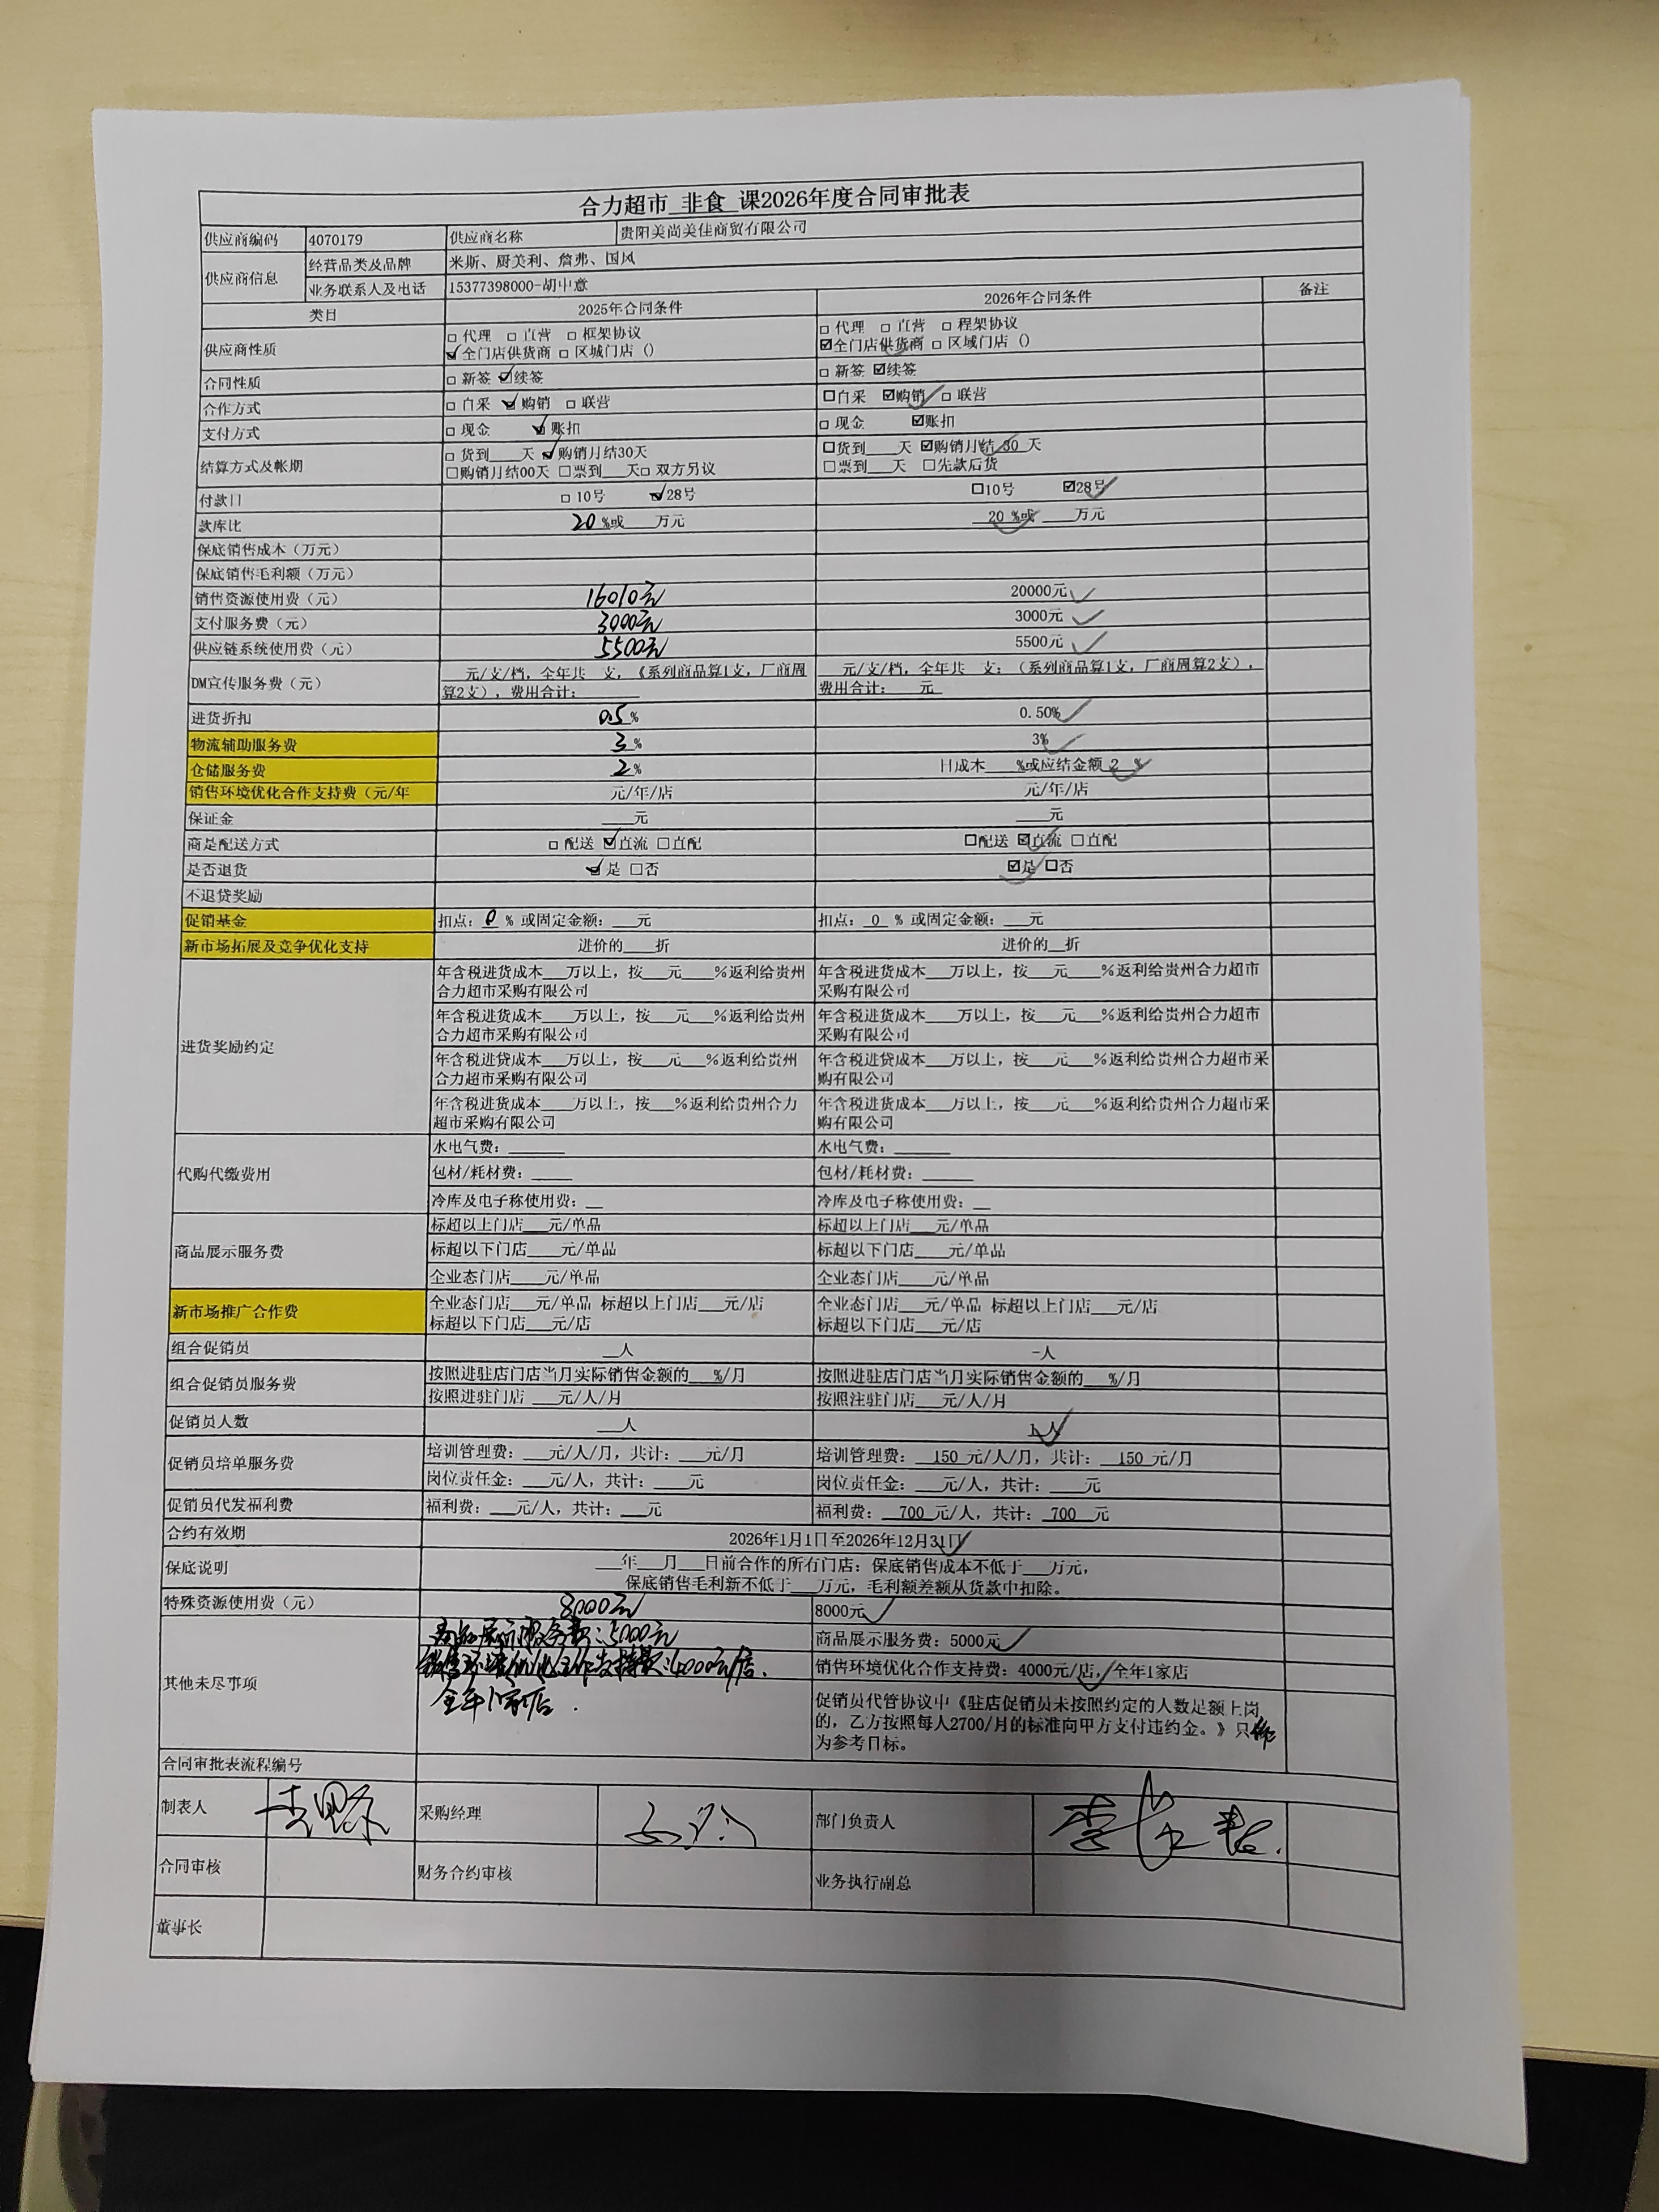 合力超市 非食 课2026年度合同审批表
供应商编码 4070179 供应商名称 贵阳美尚美佳商贸有限公司
供应商信息 经营品类及品牌 米斯、厨美利、詹弗、国风
业务联系人及电话 15377398000-胡中意
类目 2025年合同条件 2026年合同条件 备注
供应商性质
□ 代理 □ 直营 □ 框架协议
☑全门店供货商 □ 区城门店（）
□ 代理 □ 直营 □ 程架协议
☑全门店供货商 □ 区域门店（）
合同性质 □ 新签 ☑续签 □ 新签 ☑续签
合作方式 □ 自采 ☑购销 □ 联营 □自采 ☑购销 □ 联营
支付方式 □ 现金 ☑账扣 □ 现金 ☑账扣
结算方式及帐期
□ 货到___天 ☑购销月结30天
□购销月结00天 □票到___天□ 双方另议
□货到___天 ☑购销月结 30 天
□票到___天 □先款后货
付款日 □ 10号 ☑28号 □10号 ☑28号
款库比 20 %或___万元 20 %或___万元
保底销售成本（万元）
保底销售毛利额（万元）
销售资源使用费（元） 16010元 20000元
支付服务费（元） 3000元 3000元
供应链系统使用费（元） 5500元 5500元
DM宣传服务费（元）
___元/支/档，全年共__支，《系列商品算1支，厂商周
算2支），费用合计：______
___元/支/档，全年共__支；（系列商品算1支，厂商周算2支），
费用合计：___元
进货折扣 0.5% 0.50%
物流辅助服务费 3% 3%
仓储服务费 2% 日成本___%或应结金额 2 %
销售环境优化合作支持费（元/年 元/年/店 元/年/店
保证金 ___元 ___元
商是配送方式 □ 配送 ☑直流 □直配 □配送 ☑直流 □直配
是否退货 ☑是 □否 ☑是 □否
不退贷奖励
促销基金 扣点：0 % 或固定金额：___元 扣点： 0 % 或固定金额：___元
新市场拓展及竞争优化支持 进价的___折 进价的__折
进货奖励约定
年含税进货成本___万以上，按___元___%返利给贵州
合力超市采购有限公司
年含税进货成本___万以上，按___元___%返利给贵州合力超市
采购有限公司
年含税进货成本___万以上，按___元___%返利给贵州
合力超市采购有限公司
年含税进货成本___万以上，按___元___%返利给贵州合力超市
采购有限公司
年含税进贷成本___万以上，按___元___%返利给贵州
合力超市采购有限公司
年含税进贷成本___万以上，按___元___%返利给贵州合力超市采
购有限公司
年含税进货成本___万以上，按___%返利给贵州合力
超市采购有限公司
年含税进货成本___万以上，按___元___%返利给贵州合力超市采
购有限公司
代购代缴费用
水电气费：______ 水电气费：______
包材/耗材费：____ 包材/耗材费：_____
冷库及电子称使用费：__ 冷库及电子称使用费：__
商品展示服务费
标超以上门店___元/单品 标超以上门店___元/单品
标超以下门店___元/单品 标超以下门店___元/单品
企业态门店___元/单品 企业态门店___元/单品
新市场推广合作费
全业态门店___元/单品 标超以上门店___元/店
标超以下门店___元/店
全业态门店___元/单品 标超以上门店___元/店
标超以下门店___元/店
组合促销员 __人 -人
组合促销员服务费
按照进驻店门店当月实际销售金额的___%/月 按照进驻店门店当月实际销售金额的___%/月
按照进驻门店 ___元/人/月 按照注驻门店___元/人/月
促销员人数 ___人 1人
促销员培单服务费
培训管理费：___元/人/月，共计：___元/月 培训管理费： 150 元/人/月，共计： 150 元/月
岗位责任金：___元/人，共计：___元 岗位责任金：___元/人，共计：___元
促销员代发福利费 福利费：___元/人，共计：___元 福利费： 700 元/人，共计： 700 元
合约有效期 2026年1月1日至2026年12月31日
保底说明
___年___月___日前合作的所有门店：保底销售成本不低于___万元，
保底销售毛利新不低于___万元，毛利额差额从货款中扣除。
特殊资源使用费（元） 8000元 8000元
其他未尽事项
商品展示服务费：5000元
销售环境优化工作支持费：4000元/店.
全年1家店.
商品展示服务费：5000元
销售环境优化合作支持费：4000元/店，全年1家店
促销员代管协议中《驻店促销员未按照约定的人数足额上岗
的，乙方按照每人2700/月的标准向甲方支付违约金。》只作
为参考目标。
合同审批表流程编号
制表人 采购经理 部门负责人
合同审核 财务合约审核 业务执行副总
董事长